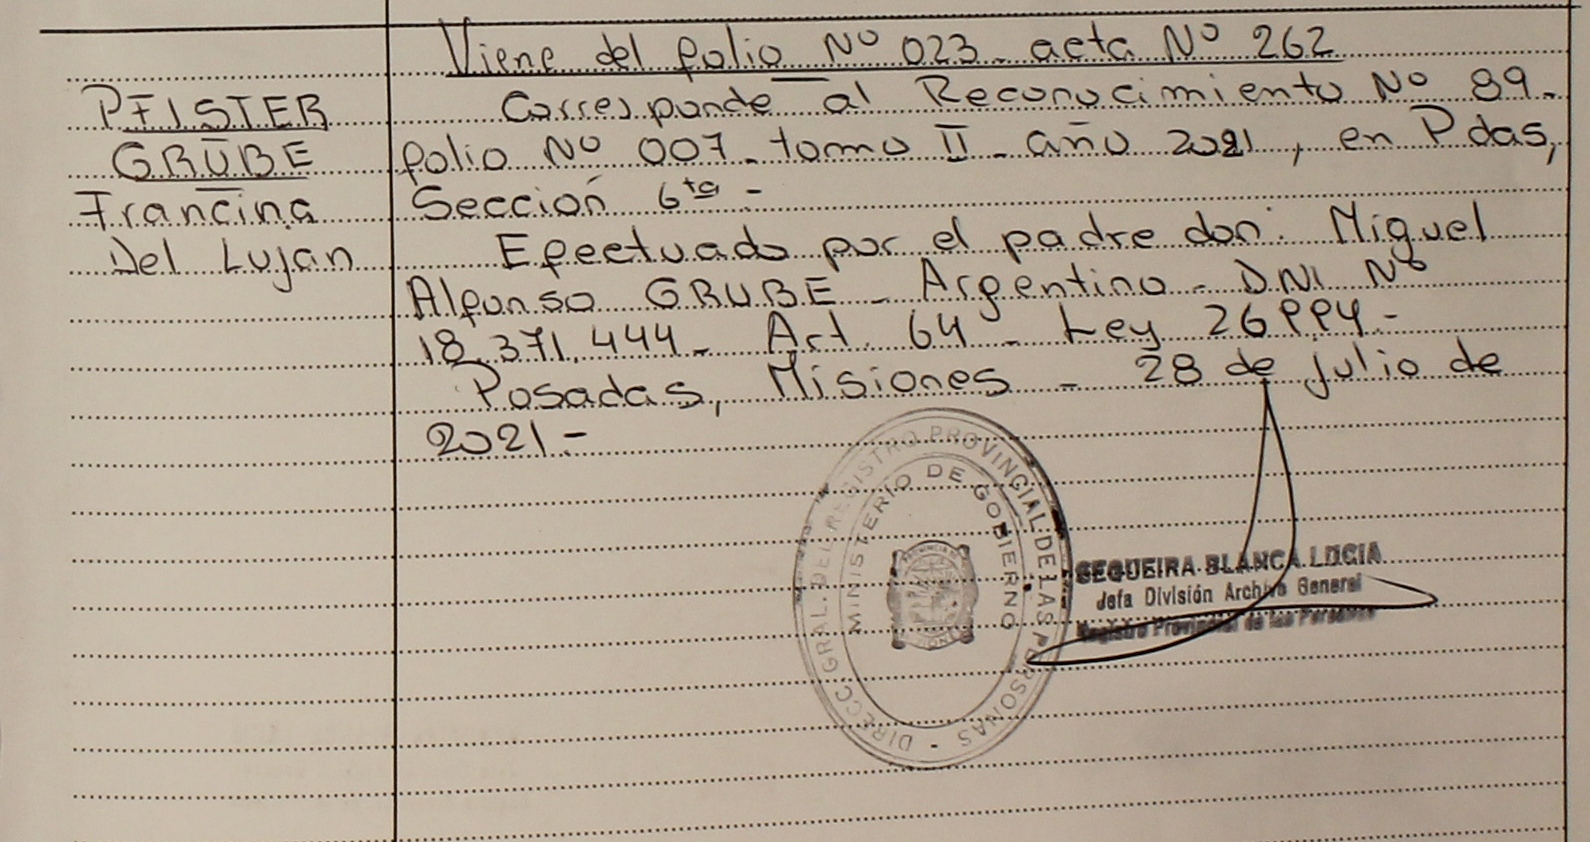 Viene del folio Nº 023 - acta Nº 262
PFISTER
GRUBE
Francina
Del Lujan
Corresponde al Reconocimiento Nº 89-
folio Nº 007 - tomo II - año 2021, en Pdas,
Sección 6ta -
Efectuado por el padre don: Miguel
Alfonso GRUBE - Argentino - DNI Nº
18.371.444 - Art. 64 - Ley 26994 -
Posadas, Misiones - 28 de julio de
2021 -
DIRECC. GRAL. DEL REGISTRO PROVINCIAL DE LAS PERSONAS -
MINISTERIO DE GOBIERNO
SEQUEIRA BLANCA LUCIA
Jefa División Archivo General
Registro Provincial de las Personas